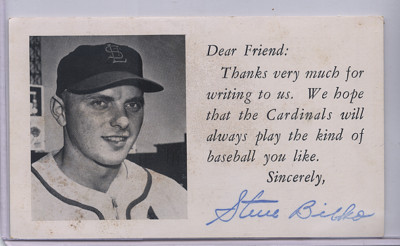 SL
Dear Friend:
Thanks very much for
writing to us. We hope
that the Cardinals will
always play the kind of
baseball you like.
Sincerely,
Steve Bilko